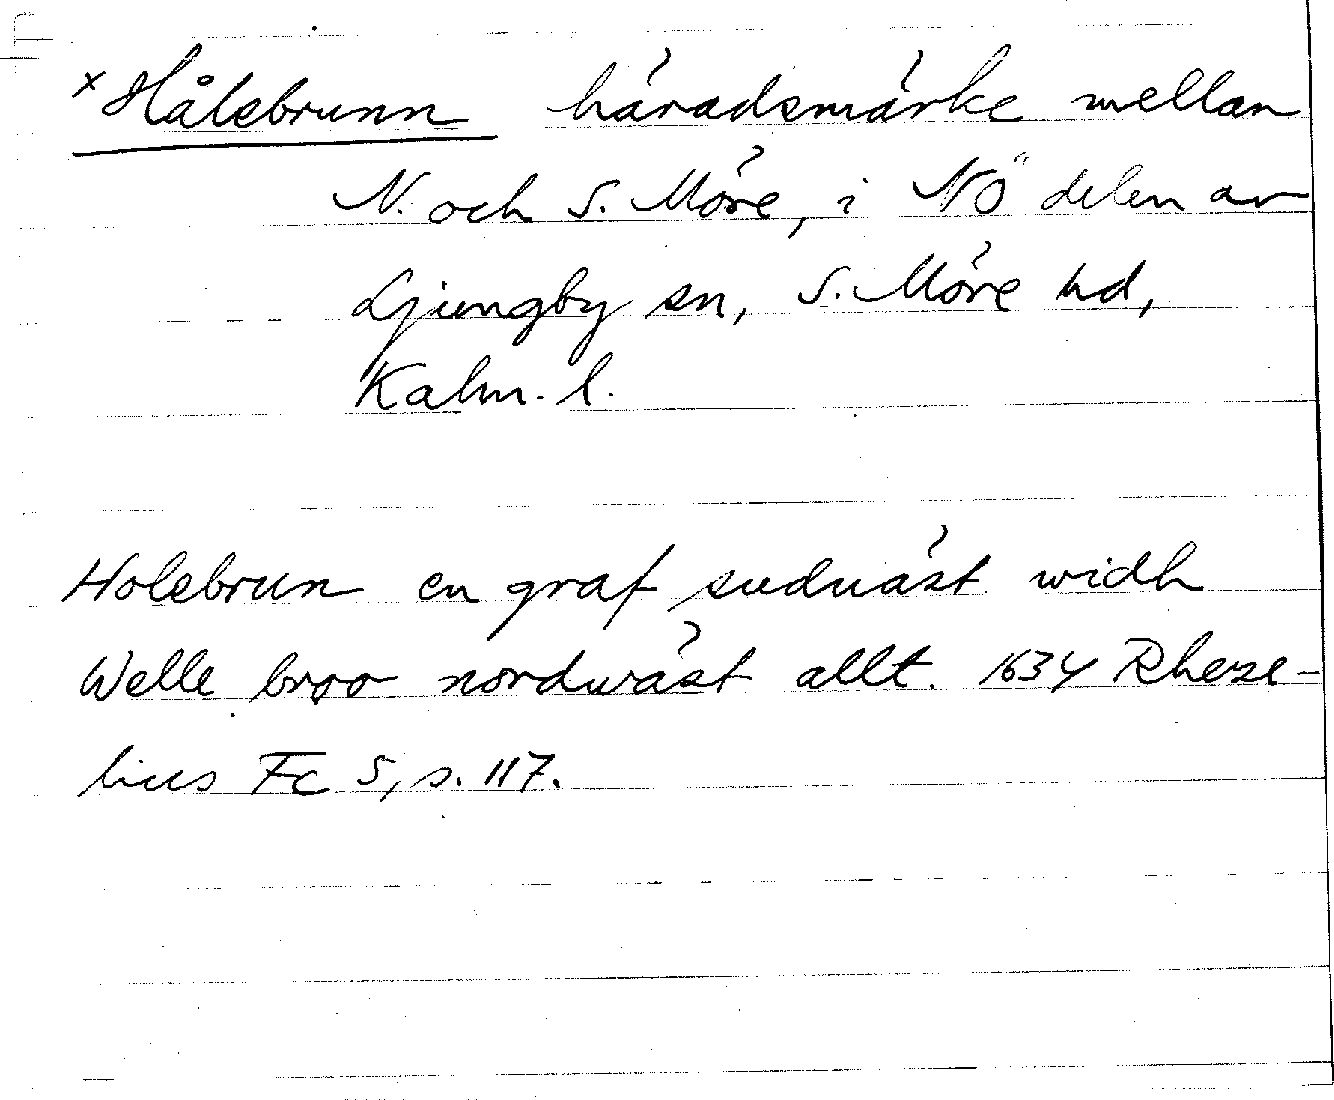 x Hålebrunn häradsmärke mellan
N. och S. Möre, i NÖ delen av
Ljungby sn, S. Möre hd,
Kalm. l.
Holebrun en graf suduäst widh
Welle broo nordwäst allt. 1634 Rheze-
lius Fc 5, s. 117.